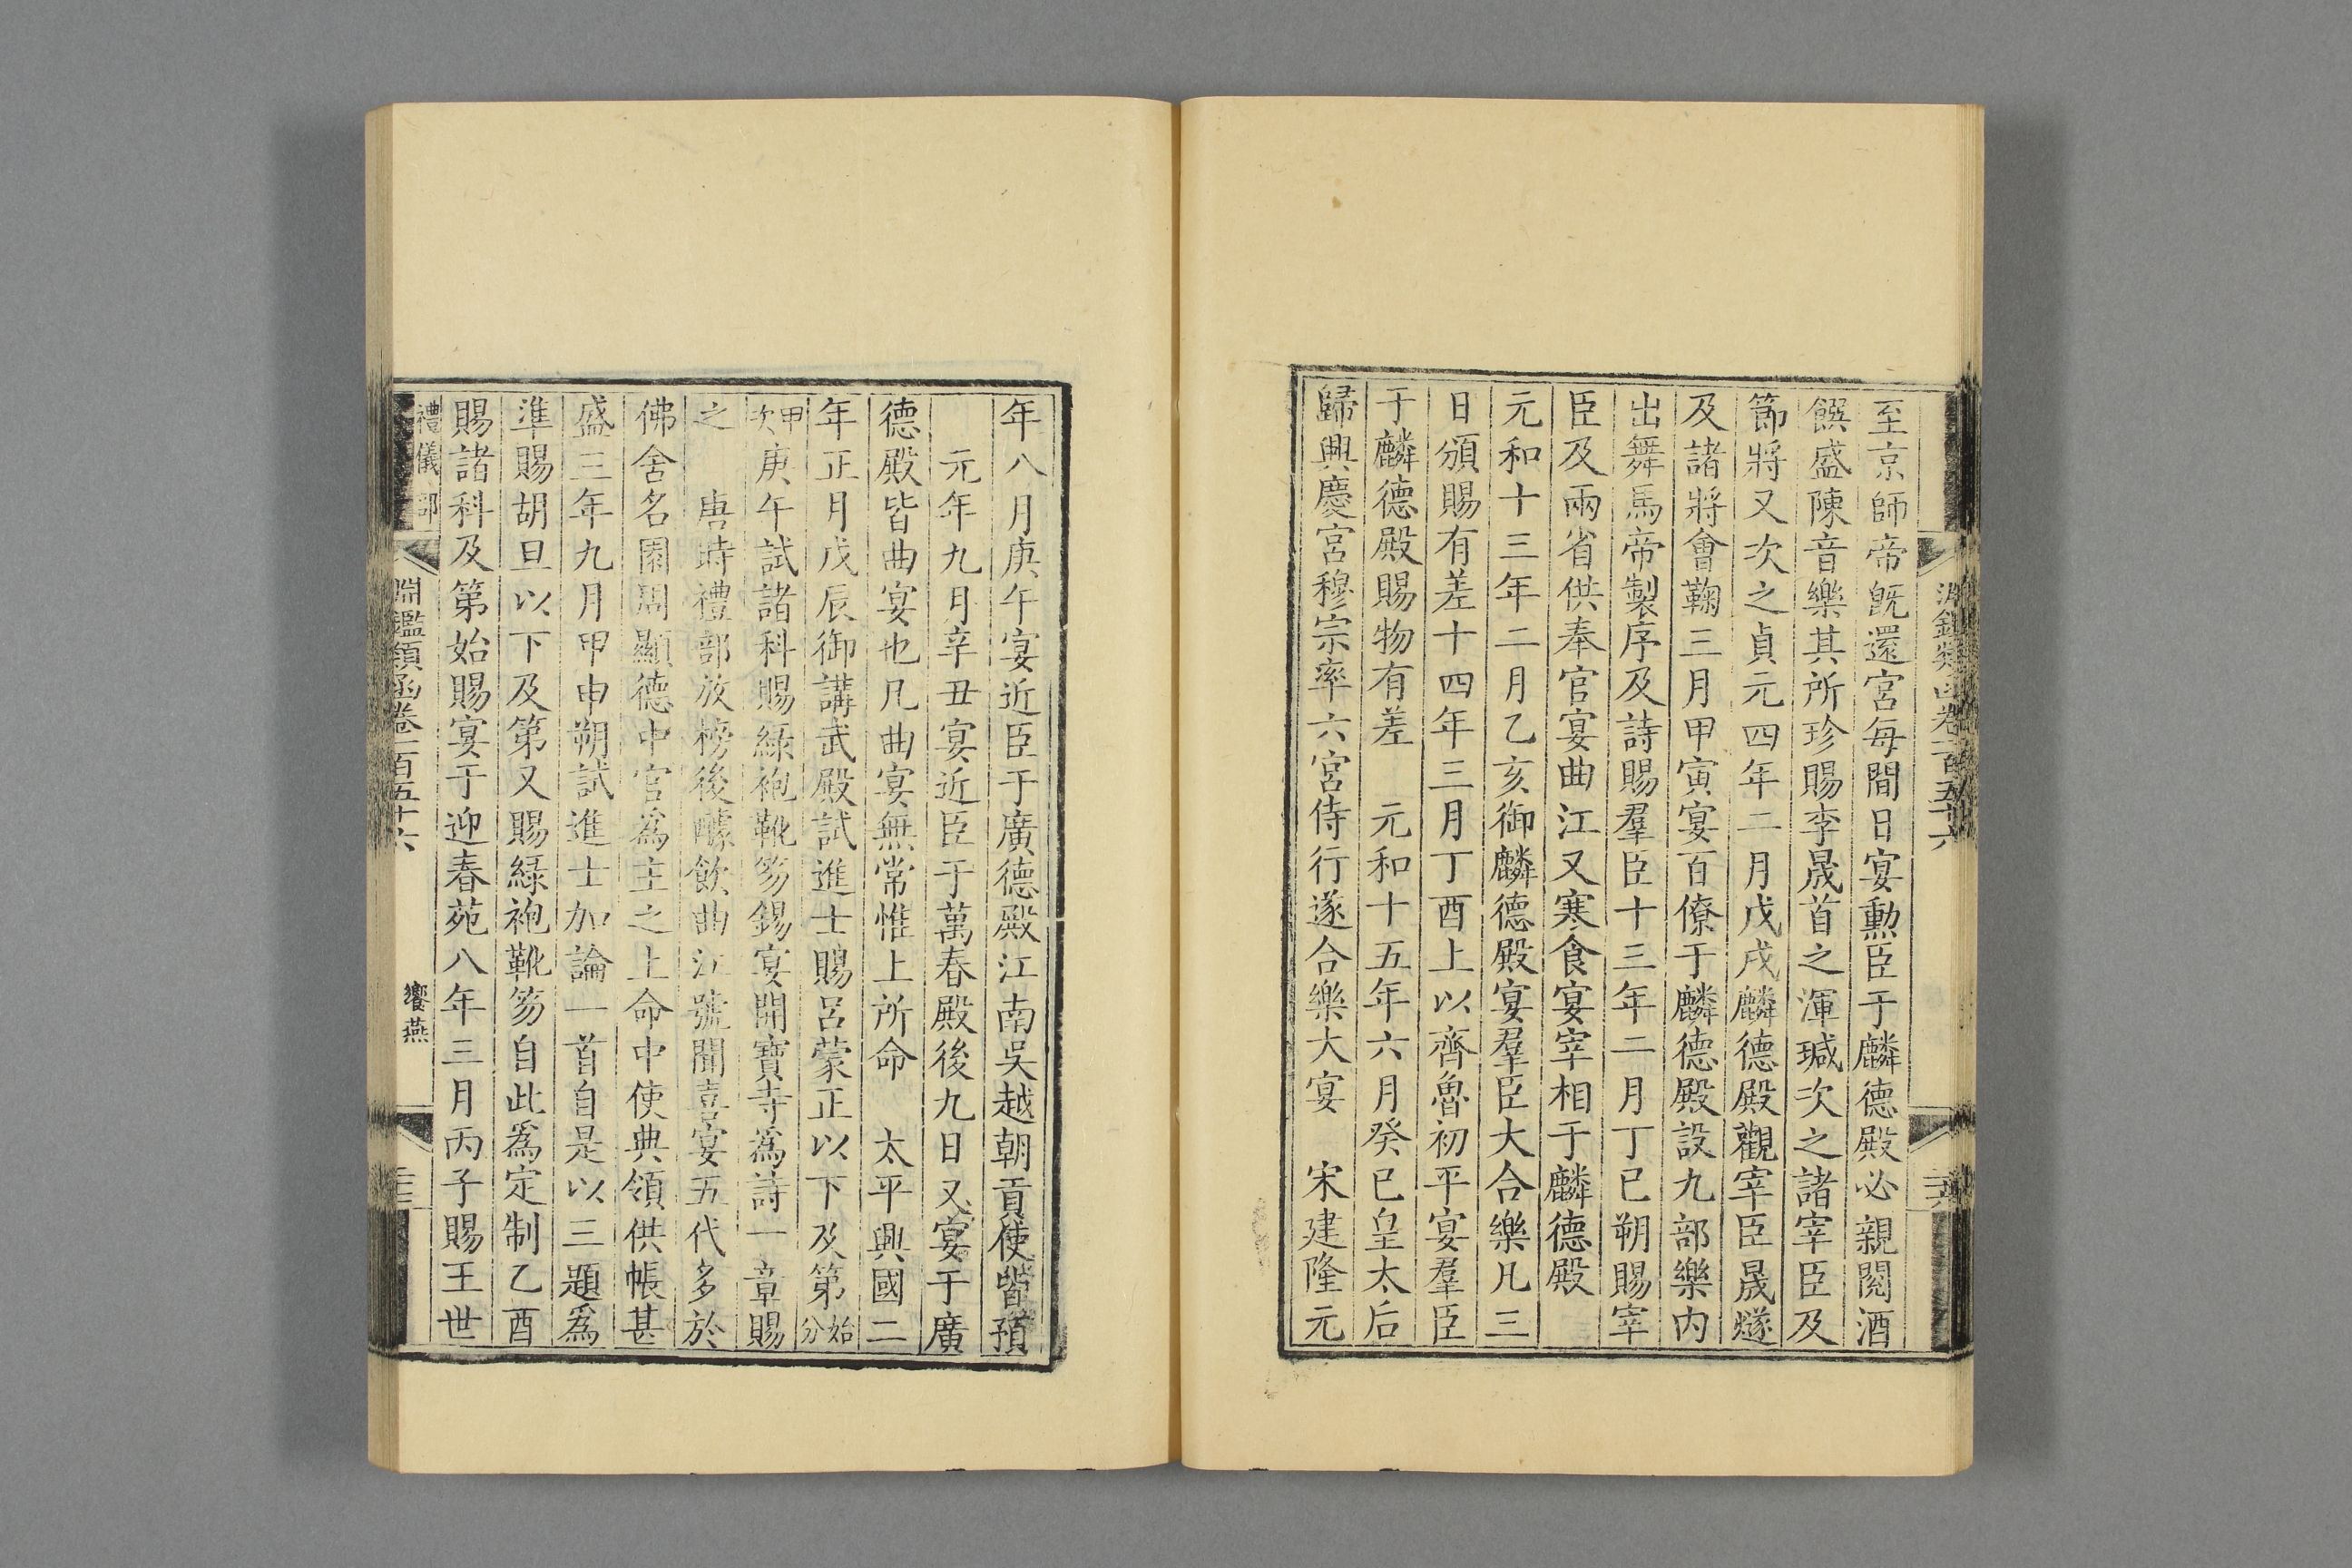 淵鑑類函卷一百五十六
至京師帝旣還宮每間日宴勳臣于麟德殿必親閱酒
饌盛陳音樂其所珍賜李晟首之渾瑊次之諸宰臣及
節將又次之貞元四年二月戊戌麟德殿觀宰臣晟燧
及諸將會鞠三月甲寅宴百僚于麟德殿設九部樂內
出舞馬帝製序及詩賜羣臣十三年二月丁巳朔賜宰
臣及兩省供奉官宴曲江又寒食宴宰相于麟德殿
元和十三年二月乙亥御麟德殿宴羣臣大合樂凡三
日頒賜有差十四年三月丁酉上以齊魯初平宴羣臣
于麟德殿賜物有差　元和十五年六月癸巳皇太后
歸興慶宮穆宗率六宮侍行遂合樂大宴　宋建隆元
年八月庚午宴近臣于廣德殿江南吳越朝貢使皆預
元年九月辛丑宴近臣于萬春殿後九日又宴于廣
德殿皆曲宴也凡曲宴無常惟上所命　太平興國二
年正月戊辰御講武殿試進士賜呂蒙正以下及第始分
甲次庚午試諸科賜綠袍靴笏錫宴開寶寺爲詩一章賜
之　唐時禮部放榜後醵飲曲江號聞喜宴五代多於
佛舍名園周顯德中官爲主之上命中使典領供帳甚
盛三年九月甲申朔試進士加論一首自是以三題爲
準賜胡旦以下及第又賜綠袍靴笏自此爲定制乙酉
賜諸科及第始賜宴于迎春苑八年三月丙子賜王世
禮儀部
淵鑑類函卷一百五十六
饗燕